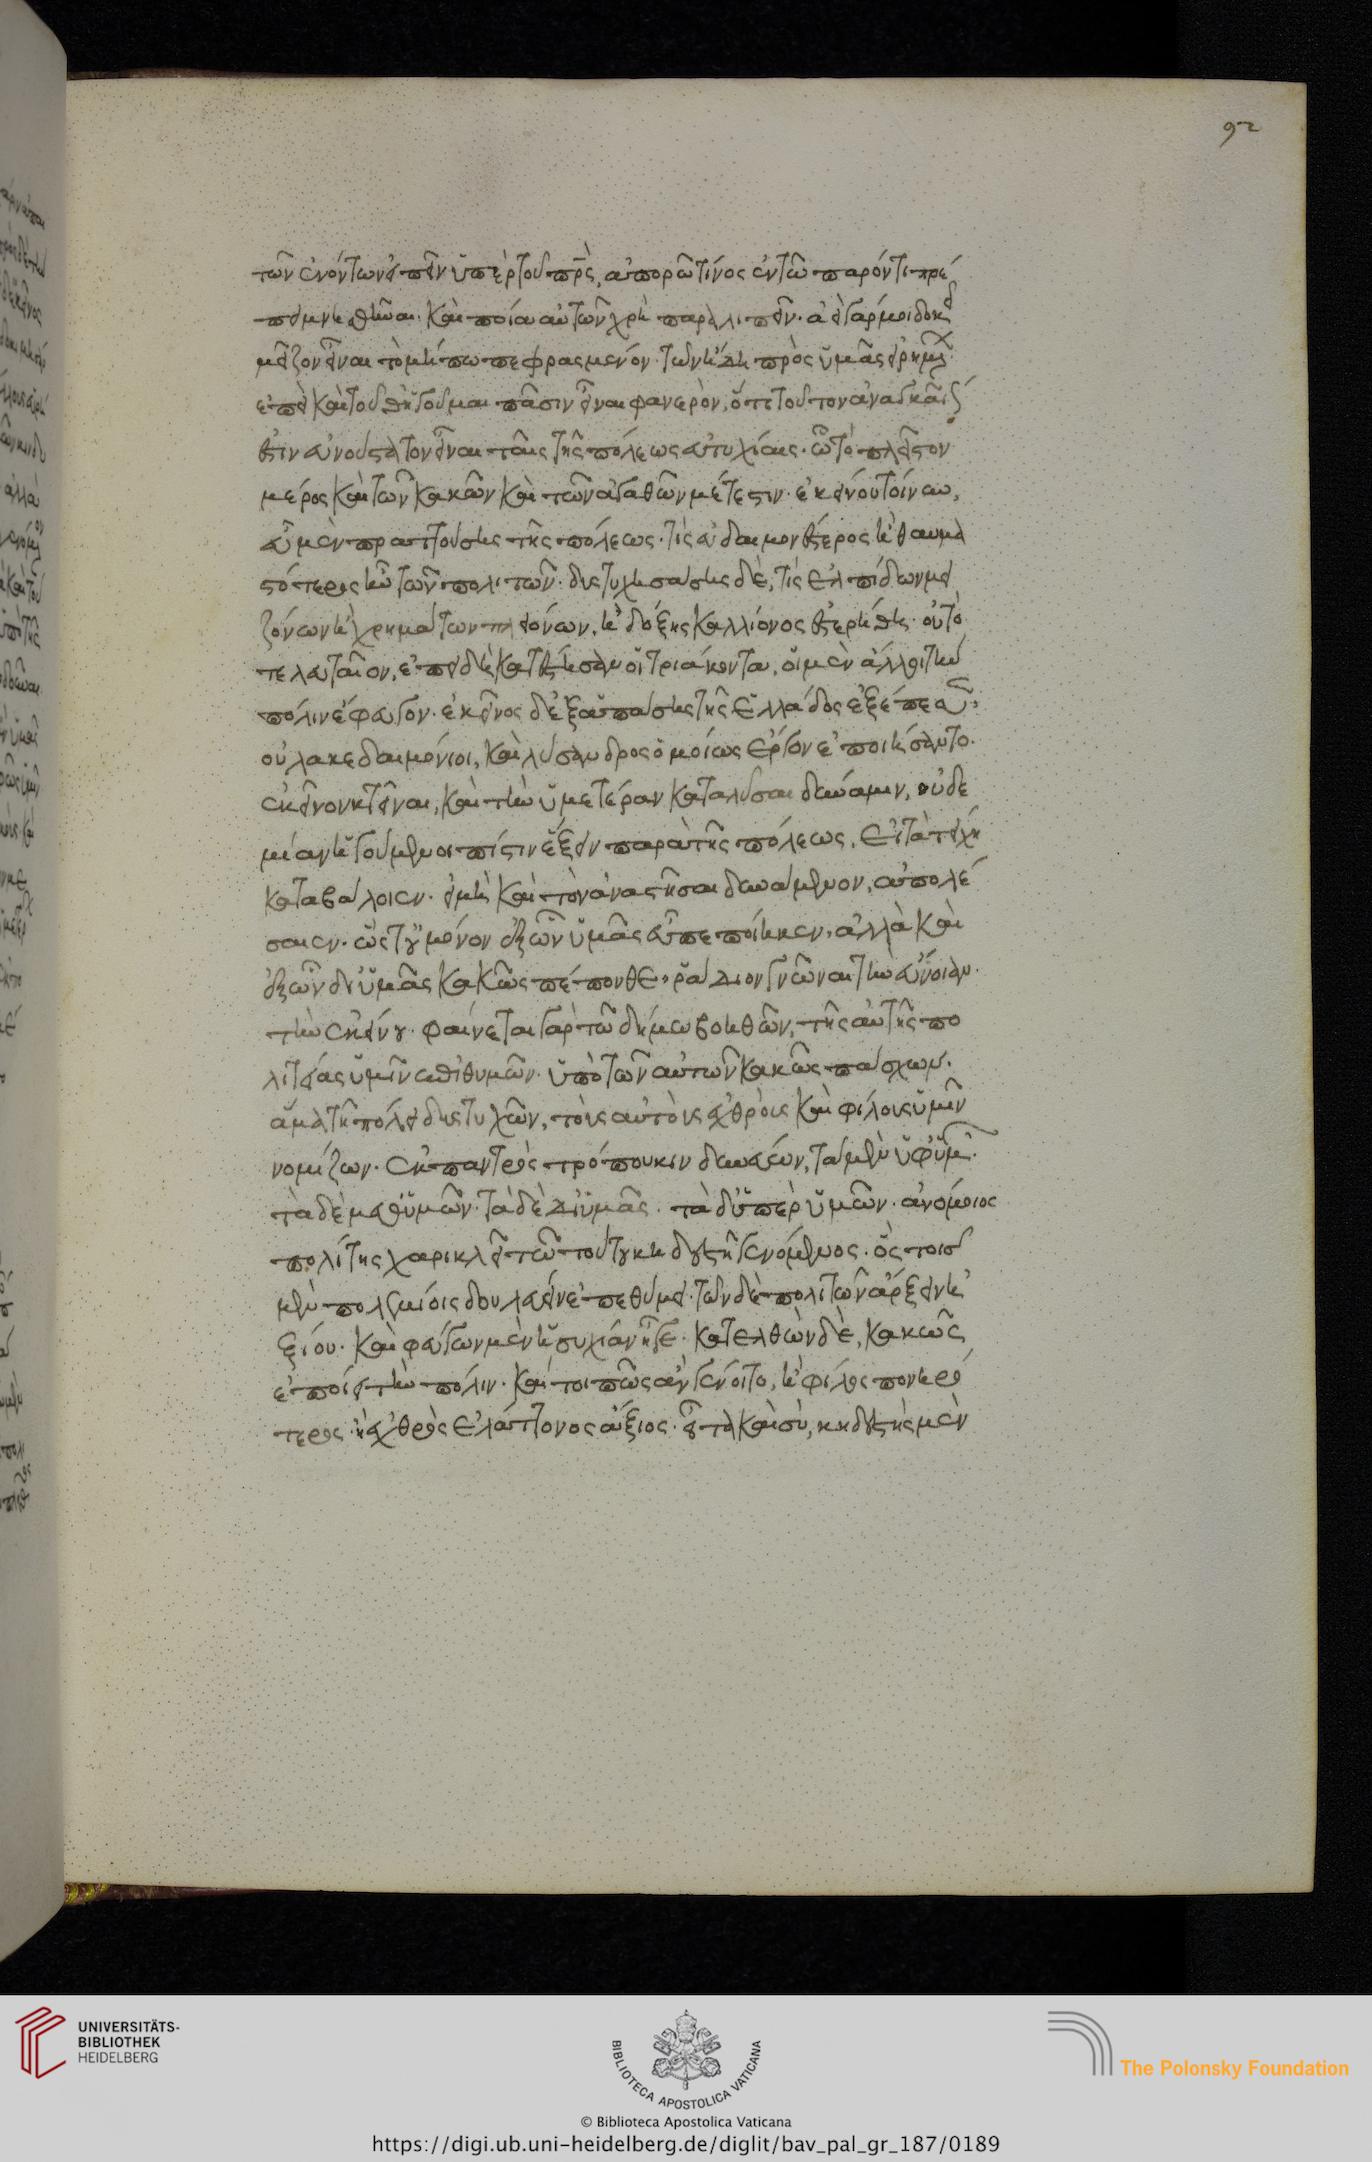 τῶν ἐνόντων εἰπεῖν ὑπὲρ τοῦ πρς, ἀπορῶ τίνος ἐν τῶ παρόντι πρέ
πει μνησθῆναι· καὶ ποῖα αὐτῶν χρὴ παραλιπεῖν· ἀεὶ γάρ μοι δοκεῖ
μεῖζον εἶναι τὸ μήπω πεφρασμένον· τῶν ἤδη πρὸς ὑμᾶς εἰρημέν·
ἐπεὶ καὶ τοῦθ' ἡγοῦμαι πᾶσιν εἶναι φανερὸν, ὅτι τοῦτον ἀναγκαῖο
ἐστιν εὐνούστατον εἶναι ταῖς τῆς πόλεως εὐτυχίαις· ὧ τὸ πλεῖστον
μέρος καὶ τῶν κακῶν καὶ τῶν ἀγαθῶν μέτεστιν· ἐκείνου τοίνυν,
εὖ μὲν πραττούσης τῆς πόλεως· τίς εὐδαιμονέστερος ἢ θαυμα
στότερος ἦν τῶν πολιτῶν· δυστυχησάσης δὲ, τίς ἐλπίδων μει
ζόνων ἢ χρημάτων πλειόνων, ἢ δόξης καλλίονος ἐστερήθη· οὐ τὸ
τελευταῖον, ἐπειδὴ κατέστησαν οἱ τριάκοντα, οἱ μὲν ἄλλοι τὴν
πόλιν ἔφευγον· ἐκεῖνος δ' ἐξ ἁπάσης τῆς ἑλλάδος ἐξέπεσεν·
οὐ λακεδαιμόνιοι, καὶ λύσανδρος ὁμοίως ἔργον ἐποιήσαντο·
ἐκεῖνον κτεῖναι, καὶ τὴν ὑμετέραν καταλῦσαι δύναμιν, οὐδε
μίαν ἡγούμενοι πίστιν ἕξειν παρὰ τῆς πόλεως, εἰ τὰ τείχη
καταβάλοιεν· εἰ μὴ καὶ τὸν ἀναστῆσαι δυνάμενον, ἀπολέ
σαιεν· ὥστ' οὐ μόνον ἐξ ὧν ὑμᾶς εὖ πεποίηκεν, ἀλλὰ καὶ
ἐξ ὧν δι' ὑμᾶς κακῶς πέπονθε, ῥάδιον γνῶναι τὴν εὔνοιαν
τὴν ἐκείνου· φαίνεται γὰρ τῶ δήμω βοηθῶν, τῆς αὐτῆς πο
λιτείας ὑμῖν ἐπιθυμῶν· ὑπὸ τῶν αὐτῶν κακῶς πάσχων·
ἅμα τῆ πόλει δυστυχῶν, τοὺς αὐτοὺς ἐχθροὺς καὶ φίλους ὑμῖν
νομίζων· ἐκ παντὸς τρόπου κινδυνεύων, τὰ μὲν ὑφ' ὑμῶν·
τὰ δὲ μεθ' ὑμῶν· τὰ δὲ δι' ὑμᾶς· τὰ δ' ὑπὲρ ὑμῶν· ἀνόμοιος
πολίτης χαρικλεῖ τῶ τούτου κηδεστῆ γενόμενος· ὃς τοῖς
μὲν πολεμίοις δουλεύειν ἐπεθύμει· τῶν δὲ πολιτῶν ἄρχειν ἠ
ξίου· καὶ φεύγων μὲν ἡσυχίαν ἦγε· κατελθὼν δὲ, κακῶς
ἐποίει τὴν πόλιν· καί τοι πῶς ἂν γένοιτο, ἢ φίλος πονηρό
τερος· ἢ ἐχθρὸς ἐλάττονος ἄξιος· εἶτα καὶ σὺ, κηδεστὴς μὲν
92
UNIVERSITÄTS-
BIBLIOTHEK
HEIDELBERG
BIBLIOTECA APOSTOLICA VATICANA
The Polonsky Foundation
© Biblioteca Apostolica Vaticana
https://digi.ub.uni-heidelberg.de/diglit/bav_pal_gr_187/0189